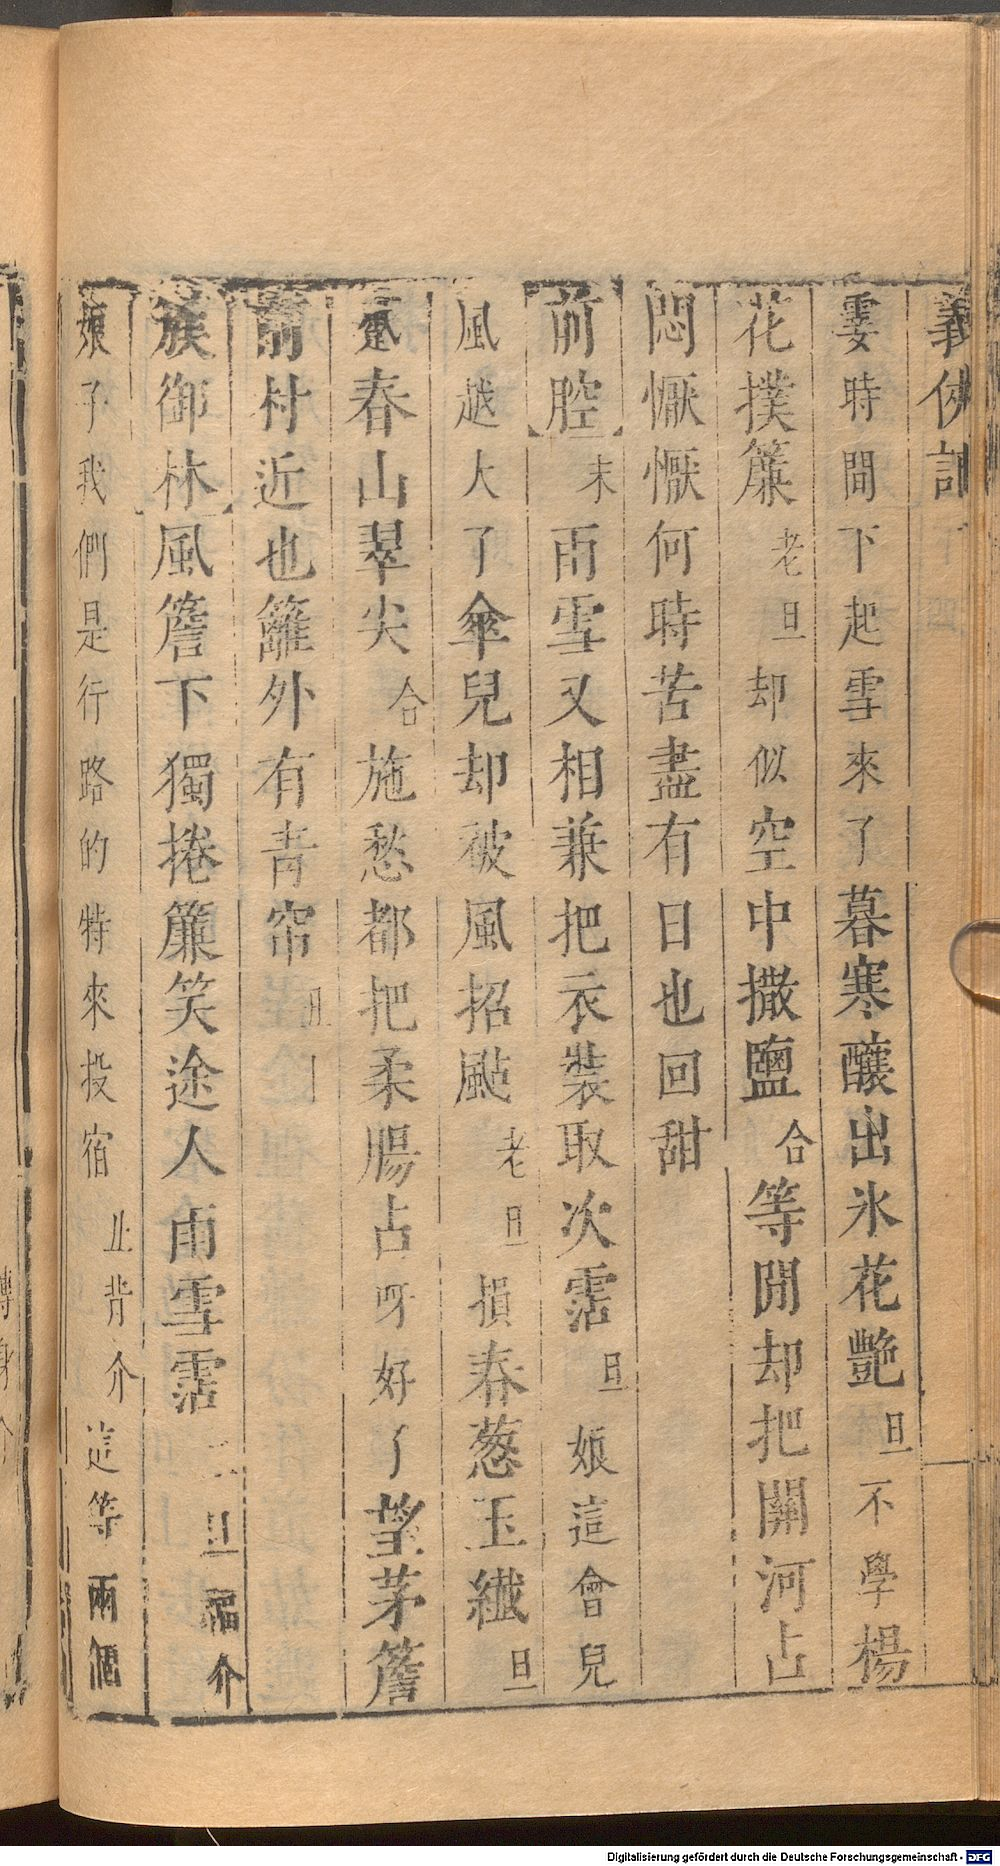 義俠記
霎時間下起雪來了暮寒釀出氷花艷旦不學楊
花撲簾老旦却似空中撒鹽合等閒却把關河占
悶懨懨何時苦盡有日也回甜
前腔末雨雪又相兼把衣裝取次霑旦娘這會兒
風越大了傘兒却被風招颭老旦損春葱玉纖旦
蹙春山翠尖合施愁都把柔腸占呀好了望茅簷
前村近也籬外有青帘丑
簇御林風簷下獨捲簾笑途人雨雪霑旦福介
娘子我們是行路的特來投宿丑背介這等兩個
Digitalisierung gefördert durch die Deutsche Forschungsgemeinschaft - DFG